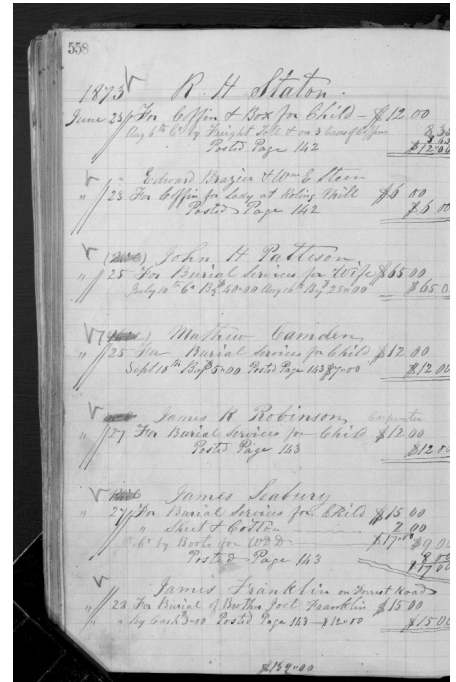 558
1873 R. H. Staton.
June 23 For Coffin & Box for Child - $12 00
Aug 6th Cr By Freight on 3 Cases of Coffins 8.35
Posted Page 142 $12.00
" Edward Brazier & Wm E. Steen
" 23 For Coffin for Lady at Roling Mill $6 00
Posted Page 142 $6 00
John H Pattison.
" 25 For Burial Services for Wife $65 00
July 10th Cr By $40=00 Aug 16th By $25=00 $65 00
Mathew Camden
" 25 For Burial Services for Child $12 00
Sept 10th By $5=00 Posted Page 143 $7=00 $12 00
James R Robinson Carpenter
" 27 For Burial Services for Child $12 00
Posted Page 143 $12.00
James Seabury
" 27 For Burial Services for Child $15 00
" Sheet & Cotton 2 00
Cr By Boots for $17=00 $9 00
Posted Page 143 8 00
$17 00
James Franklin on Forrest Road
" 28 For Burial of Brother Joel Franklin $15 00
" By Cash 3=00 Posted Page 143 - $12=00 $15 00
$139=00